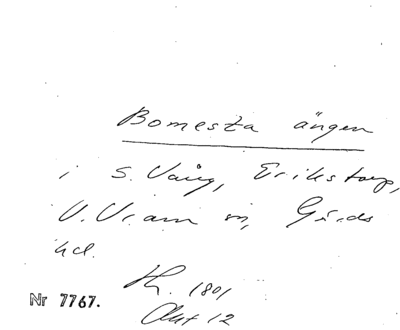 Bomesta ängen
i S. Vång, Erikstorp,
V. Vram sn, Gärds
hd.
Nr 7767.
1801
Akt 12